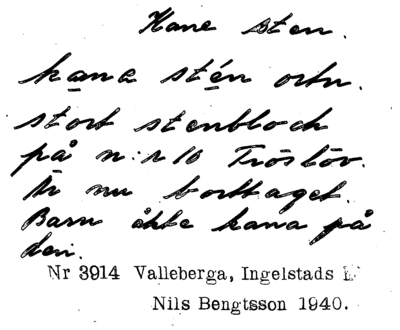 Kane sten.
kana stén ortn.
stort stenbloch
på n:r 10 Tröslöv.
Är nu borttaget.
Barn åkte kana på
den.
Nr 3914 Valleberga, Ingelstads
Nils Bengtsson 1940.